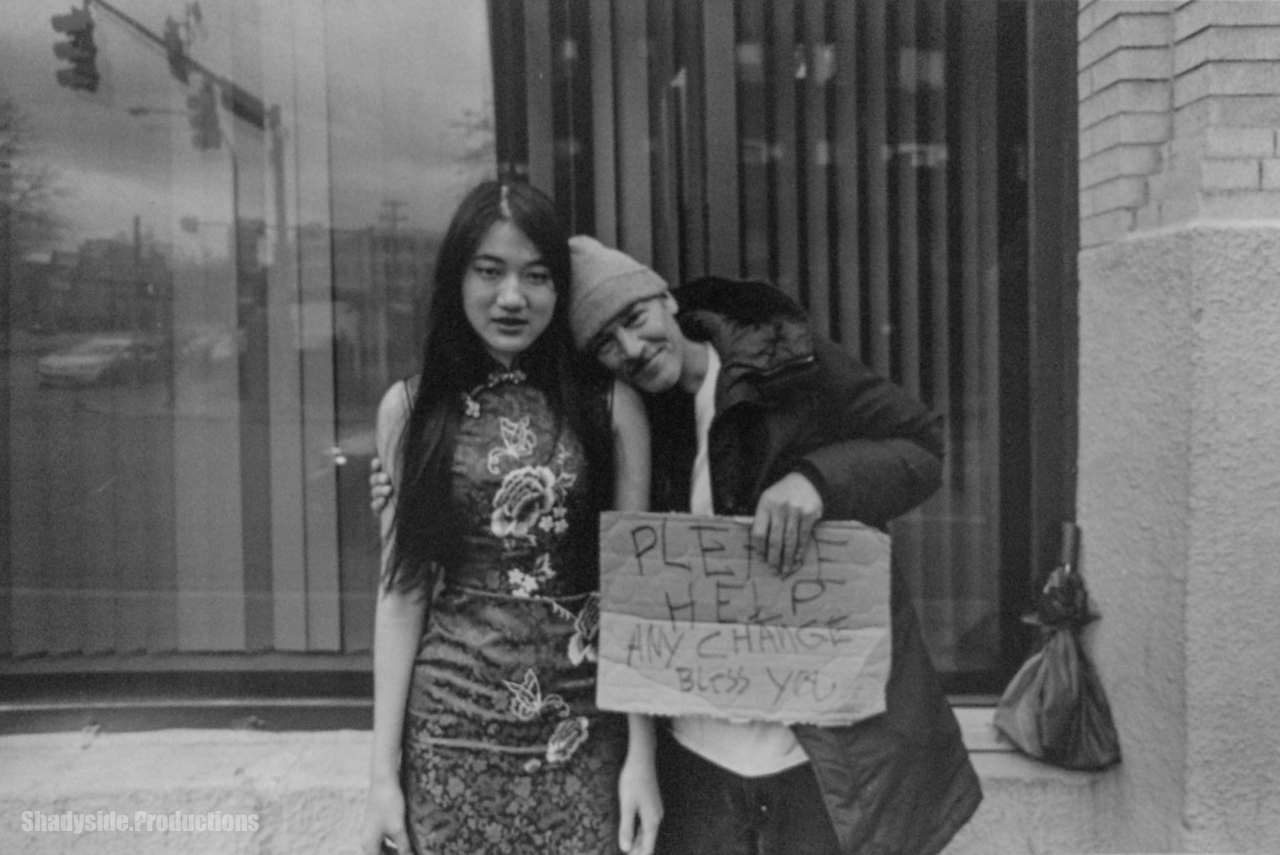 PLEASE
HELP
ANY CHANGE
BLESS YOU
Shadyside.Productions